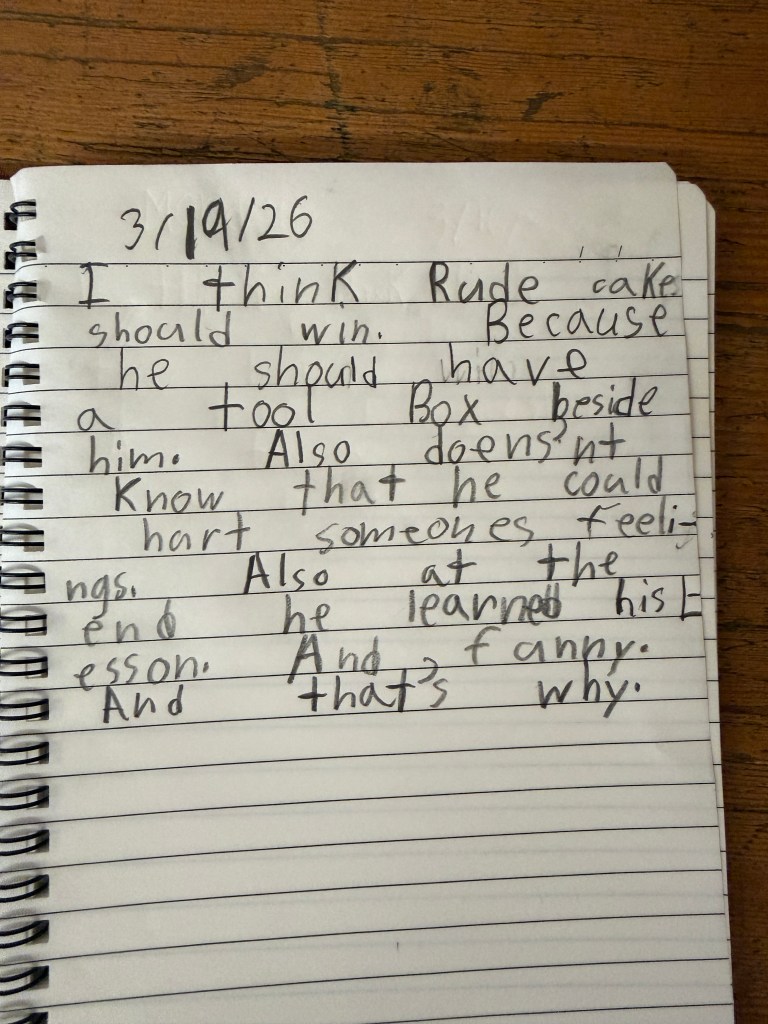 3/19/26
I think Rude cake
should win. Because
he should have
a tool Box beside
him. Also doens'nt
Know that he could
hart someones feeli-
ngs. Also at the
end he learned his L
esson. And fanny.
And that's why.